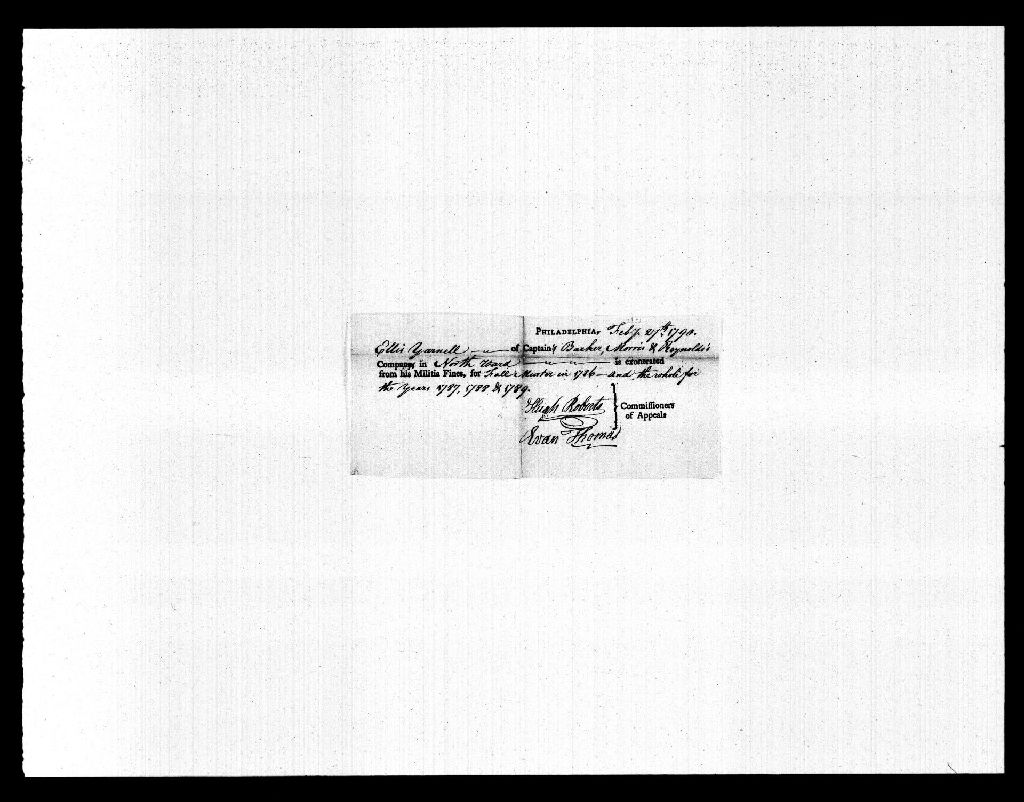 PHILADELPHIA, Feby. 27th. 1790.
Ellis Yarnell of Captain's Barker, Morris & Reynolds's
Company, in North Ward is exonerated
from his Militia Fines, for Fall Muster in 1786 and the whole for
the Years 1787, 1788 & 1789.
Hugh Roberts
Evan Thomas
} Commissioners
of Appeals